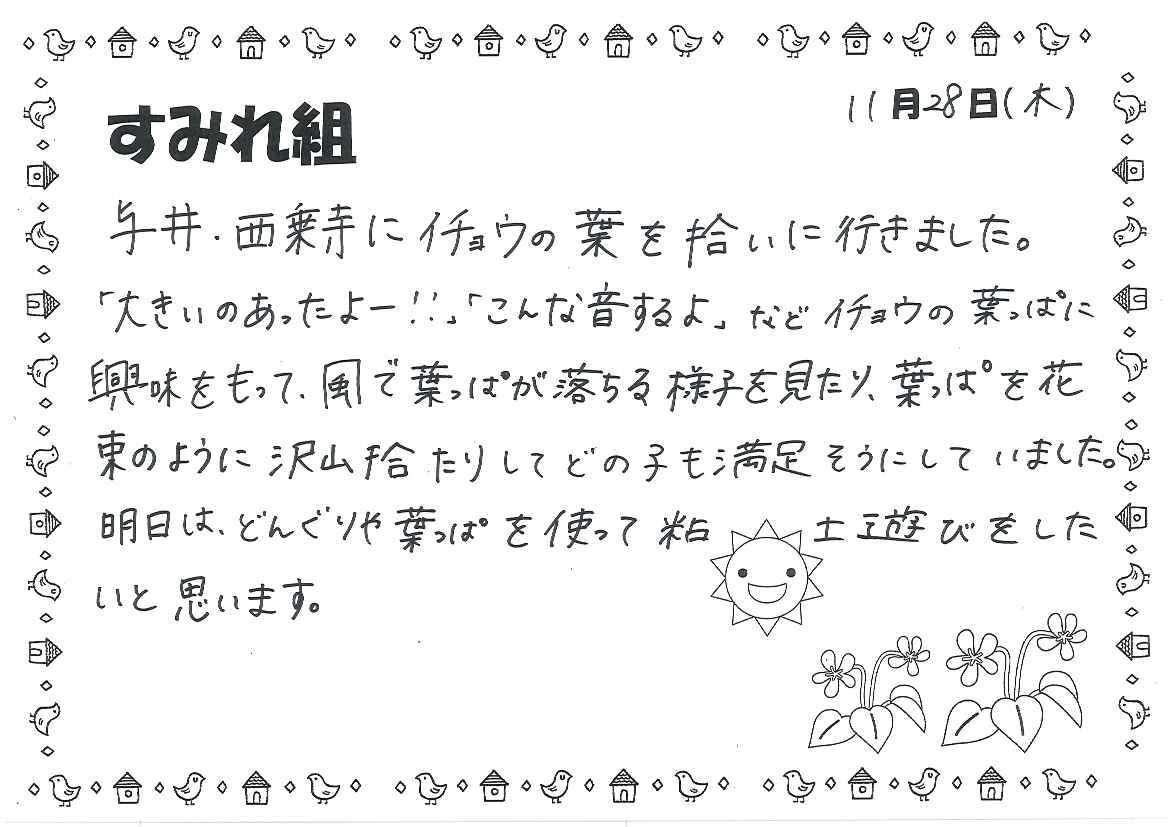 11月28日(木)
すみれ組
与井・西乗寺にイチョウの葉を拾いに行きました。
「大きいのあったよー!!」「こんな音するよ」などイチョウの葉っぱに
興味をもって、風で葉っぱが落ちる様子を見たり、葉っぱを花
束のように沢山拾たりしてどの子も満足そうにしていました。
明日は、どんぐりや葉っぱを使って粘土遊びをした
いと思います。